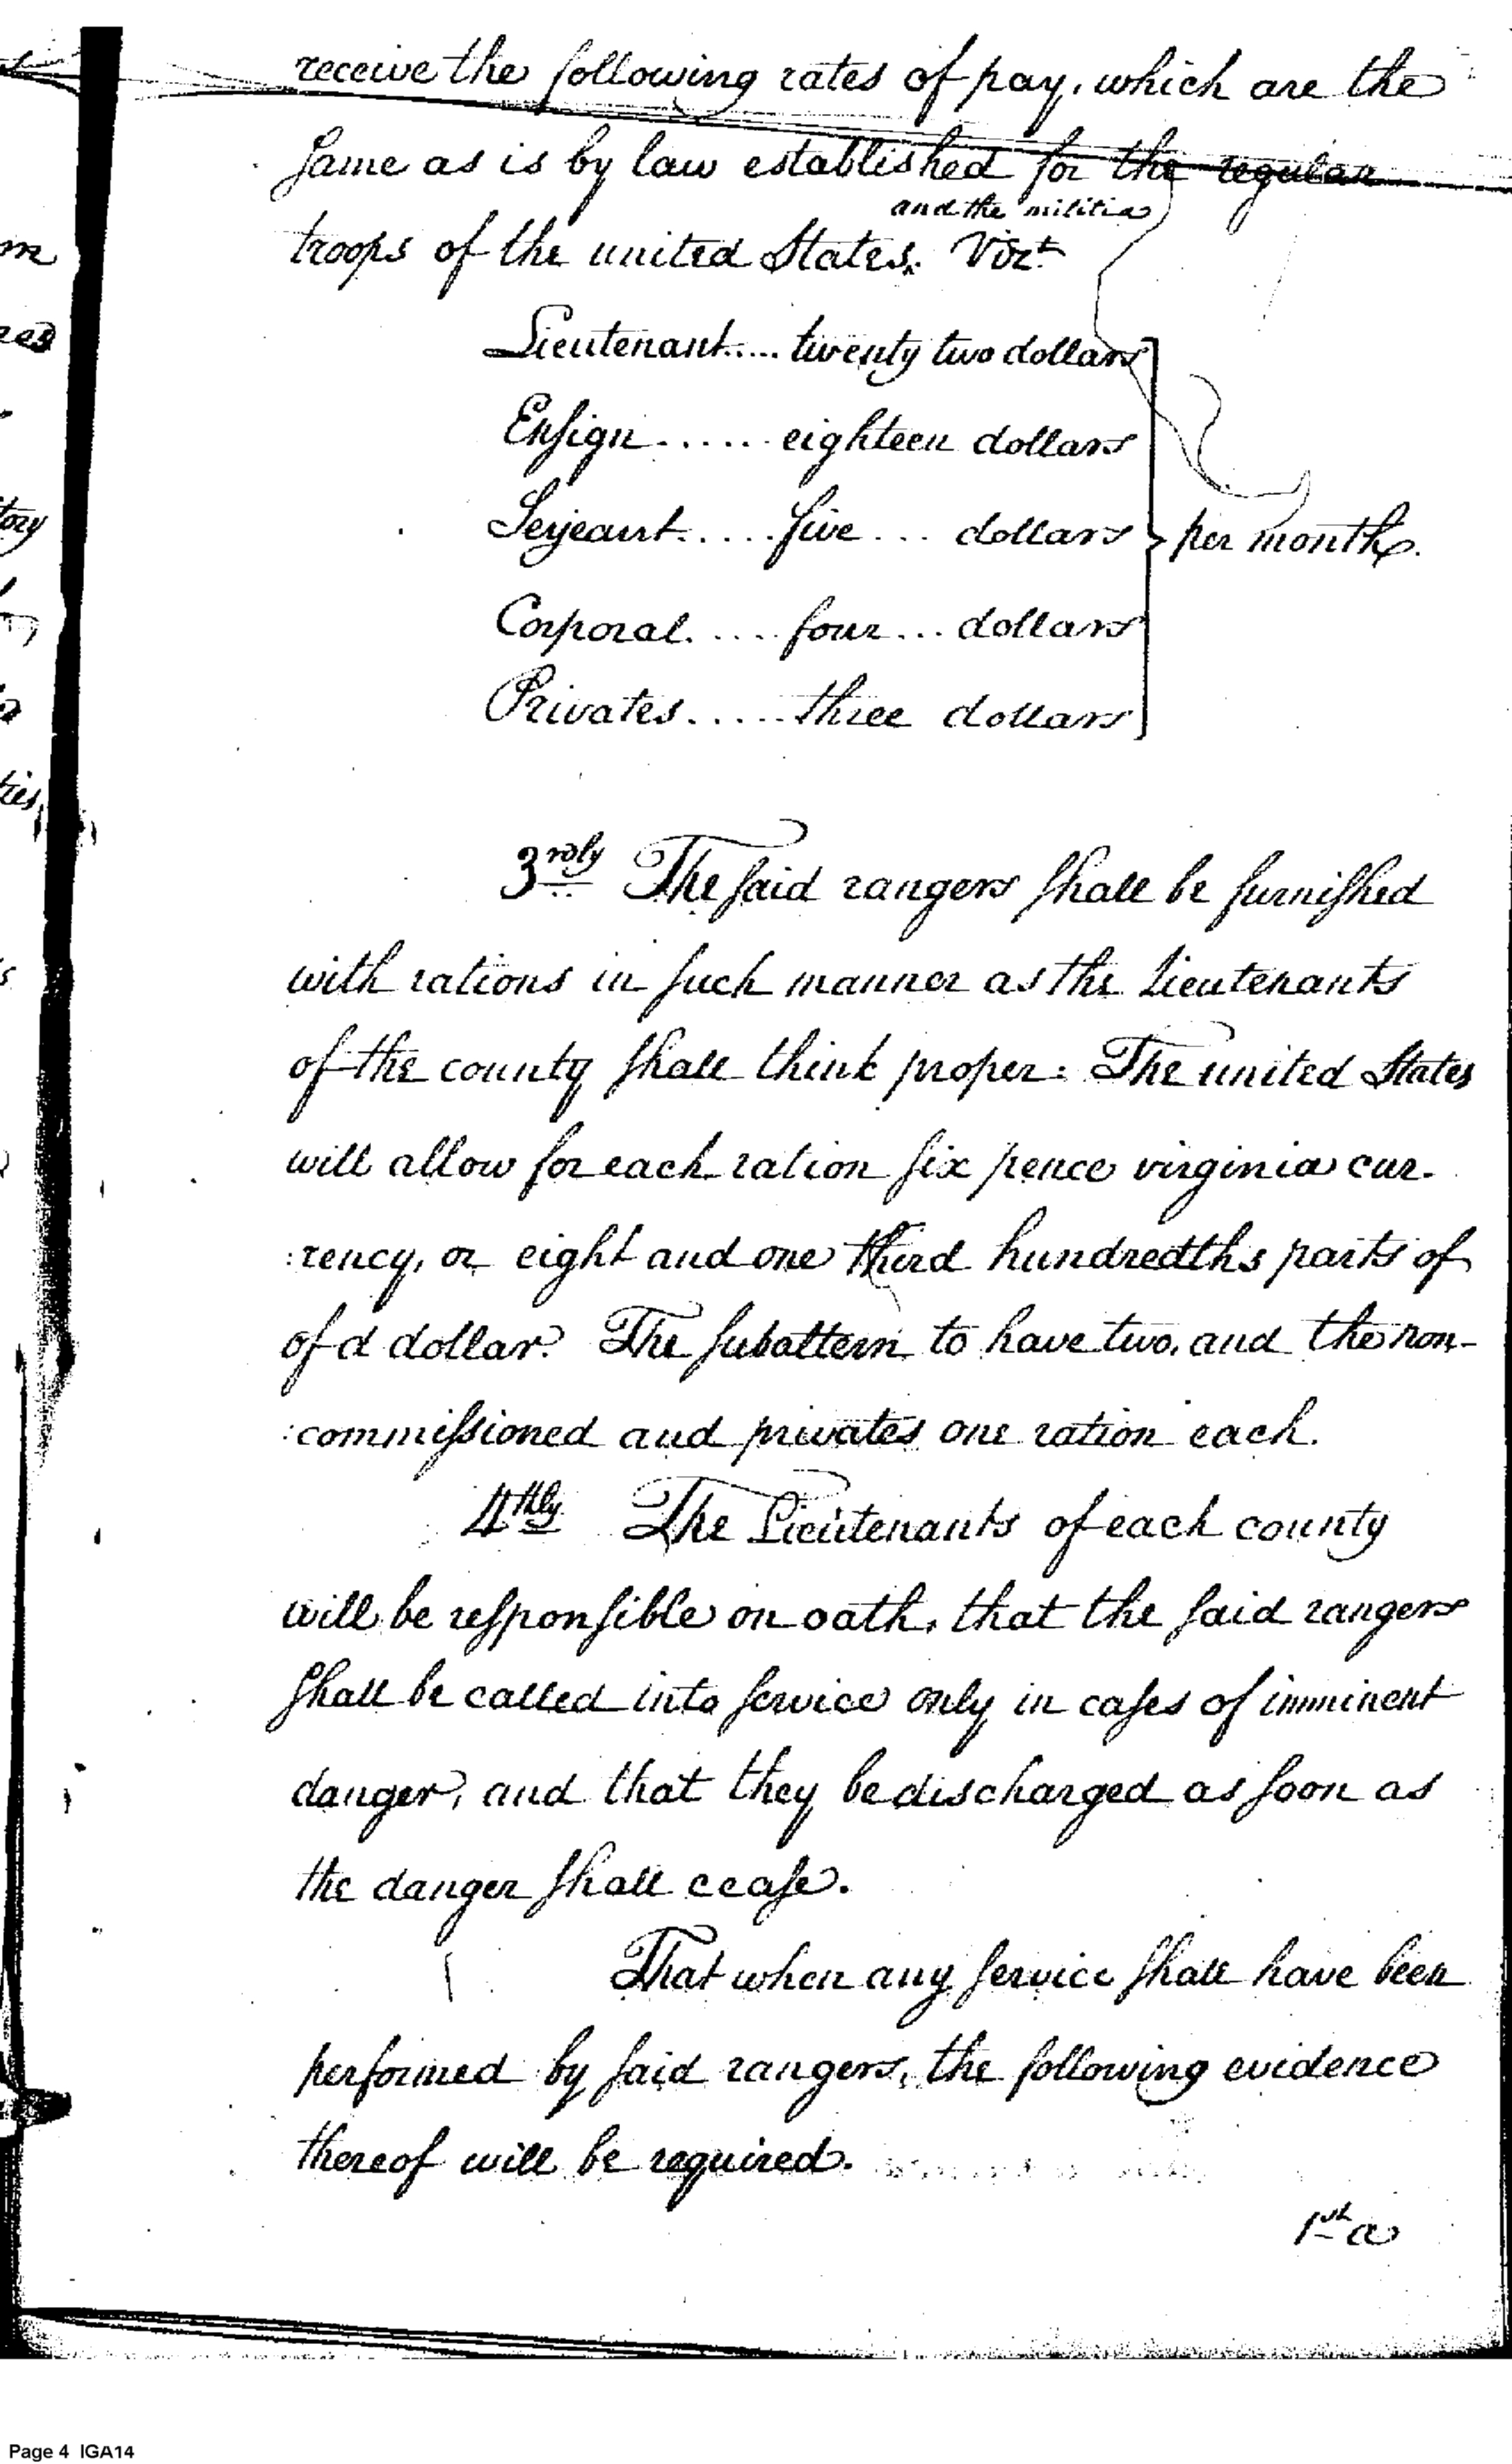 receive the following rates of pay, which are the
same as is by law established for the regular
and the militia
troops of the united States. Vizt
Lieutenant..... twenty two dollars
Ensign...... eighteen dollars
Serjeant..... five... dollars
per month.
Corporal..... four... dollars
Privates..... three dollars
3rdly The said rangers shall be furnished
with rations in such manner as the Lieutenants
of the county shall think proper. The united States
will allow for each ration six pence virginia cur-
:rency, or eight and one third hundredths parts of
of a dollar. The subaltern to have two, and the non-
:commissioned and privates one ration each.
4thly The Lieutenants of each county
will be responsible on oath, that the said rangers
shall be called into service only in cases of imminent
danger, and that they be discharged as soon as
the danger shall cease.
That when any service shall have been
performed by said rangers, the following evidence
thereof will be required.
1st a
Page 4 IGA14